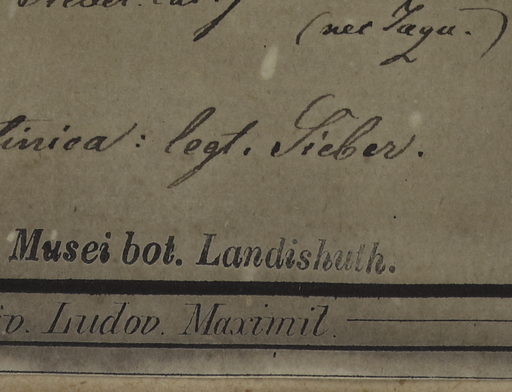 (nec Zagu.)
tinica: legt. Sieber.
Musei bot. Landishuth.
iv. Ludov. Maximil.